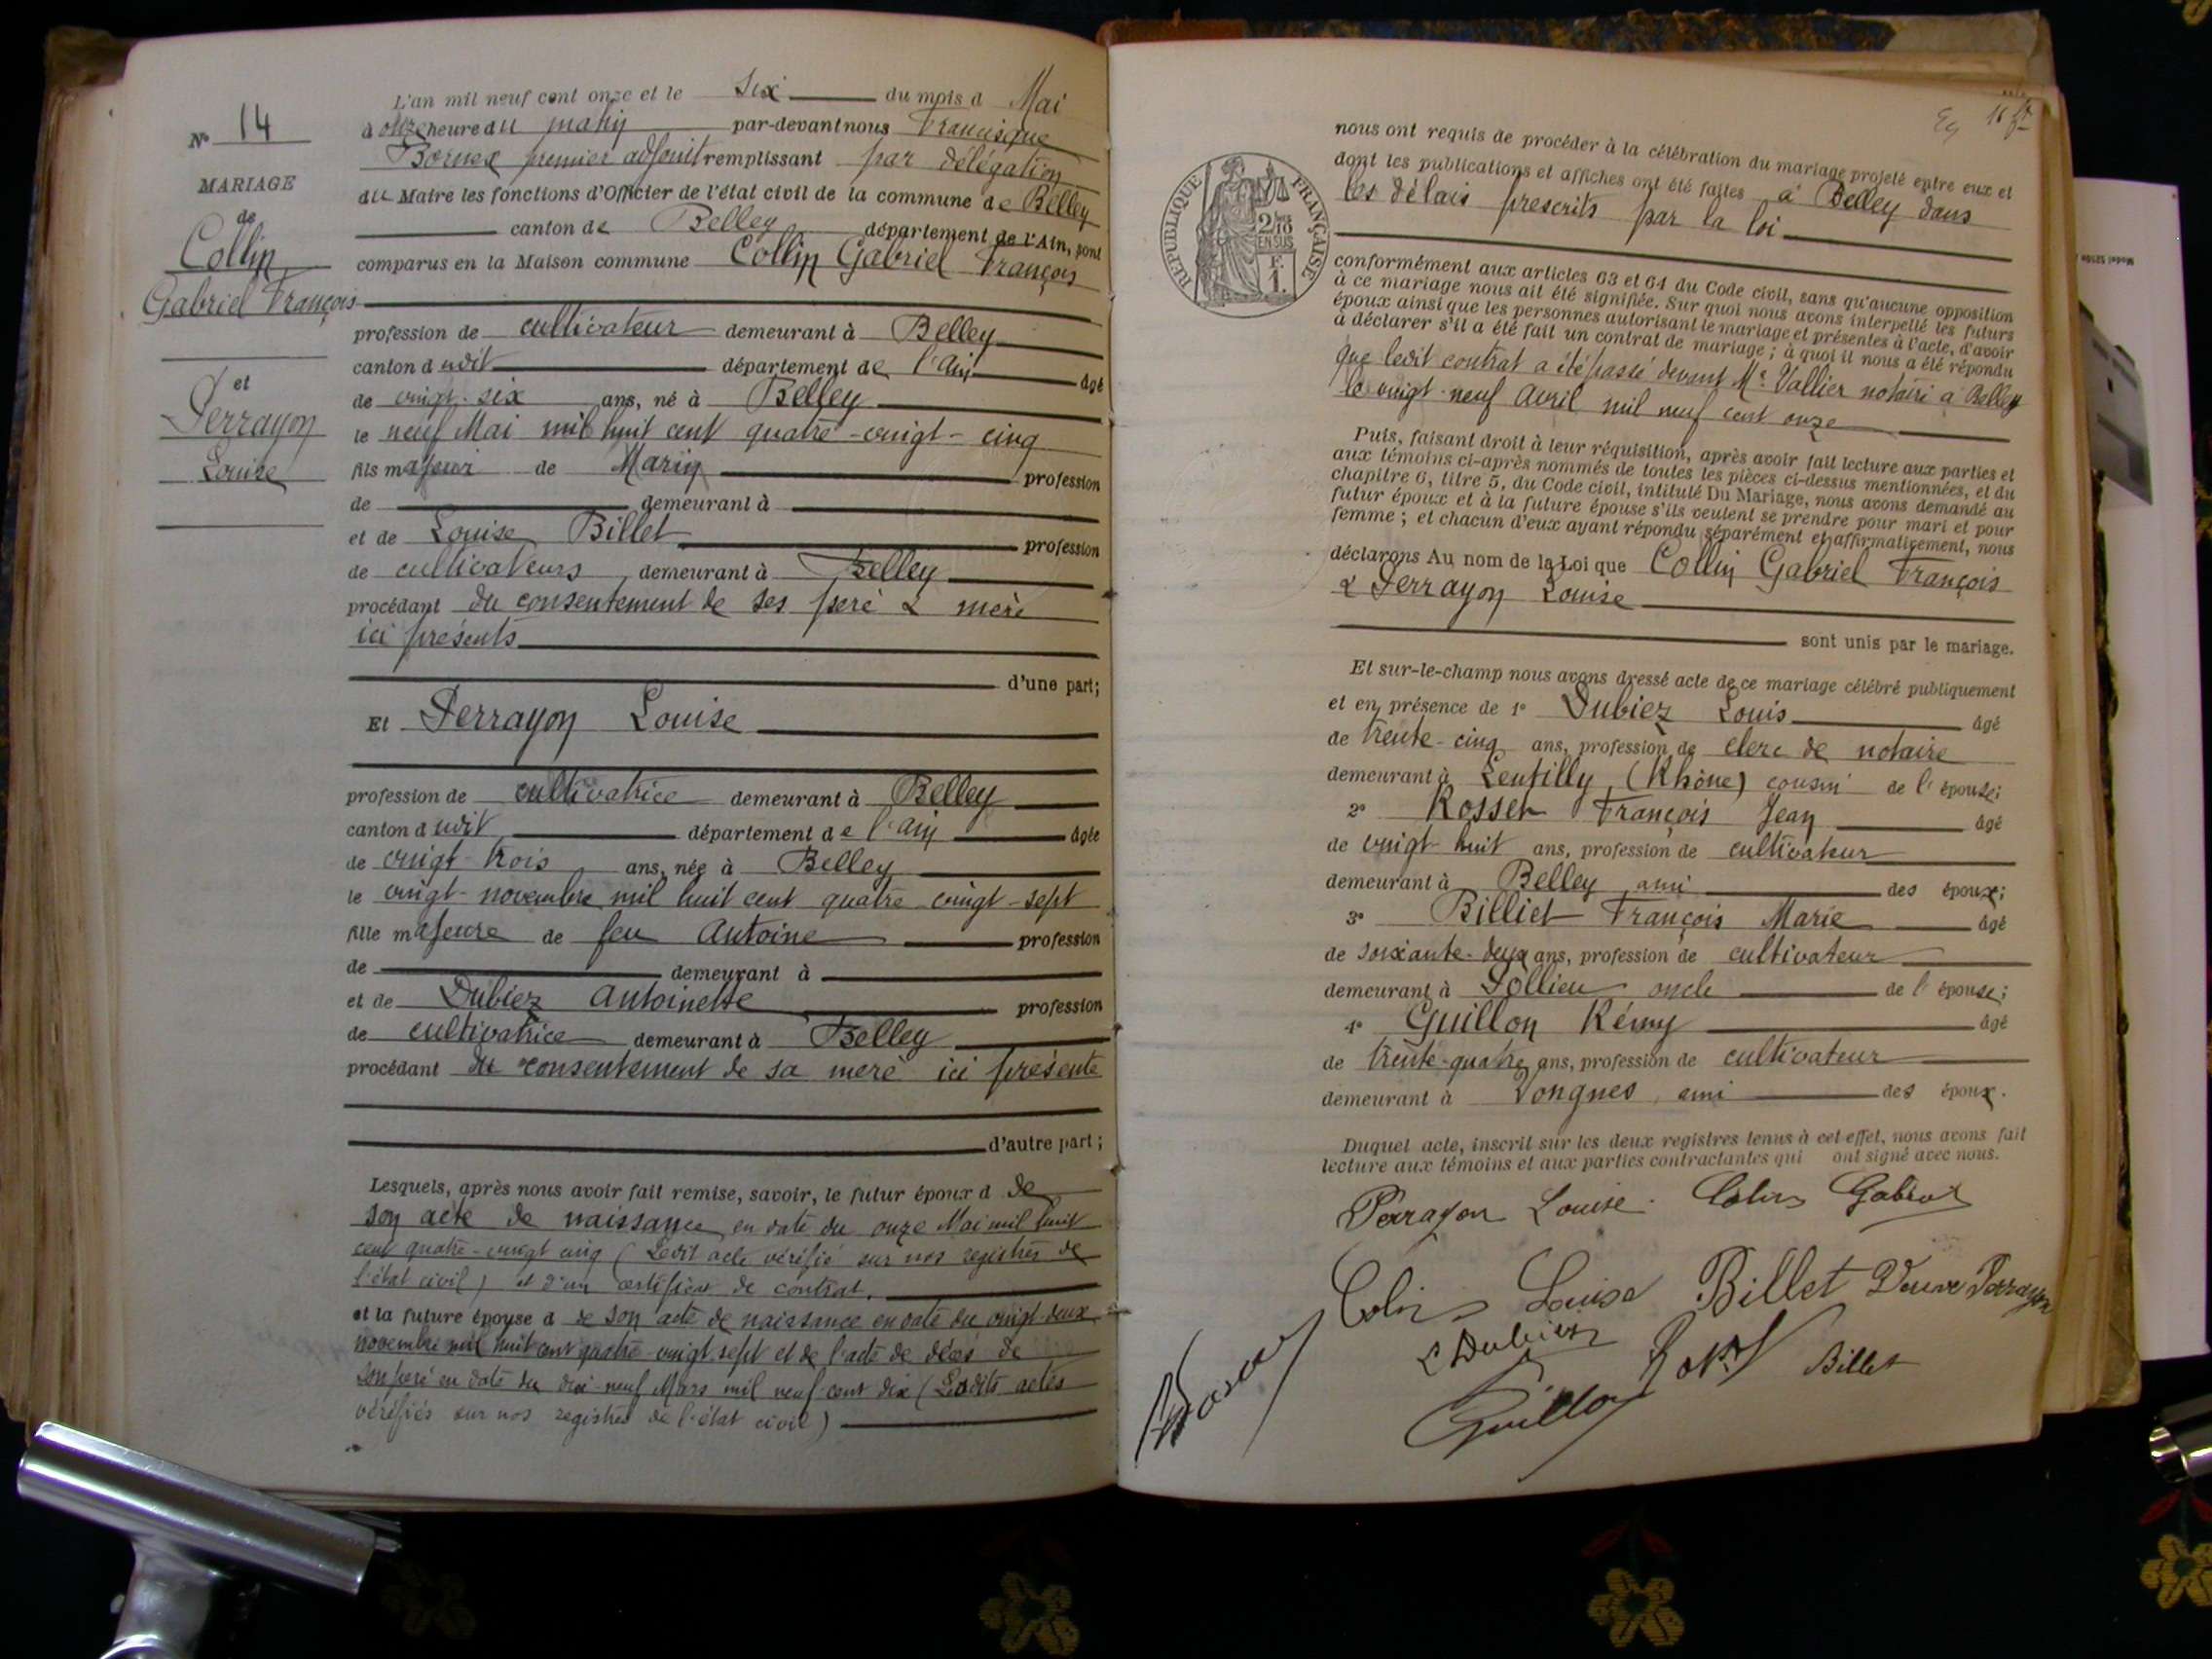 N° 14
MARIAGE
de
Collin
Gabriel François
et
Perrayon
Louise
L'an mil neuf cent onze et le Six du mois d Mai
à onze heure du matin par-devant nous Francisque
premier adjoint remplissant par délégation
du Maire les fonctions d'Officier de l'état civil de la commune de Belley
canton de Belley département de l'Ain, sont
comparus en la Maison commune Collin Gabriel François
profession de cultivateur demeurant à Belley
canton dudit département de l'Ain âgé
de vingt-six ans, né à Belley
le neuf Mai mil huit cent quatre-vingt-cinq
fils majeur de Marin profession
de demeurant à
et de Louise Billet profession
de cultivateurs, demeurant à Belley
procédant du consentement de ses père & mère
ici présents
d'une part;
Et Perrayon Louise
profession de cultivatrice demeurant à Belley
canton dudit département de l'Ain âgée
de vingt-trois ans, née à Belley
le vingt-novembre mil huit cent quatre-vingt-sept
fille majeure de feu Antoine profession
de demeurant à
et de Dubiez Antoinette profession
de cultivatrice demeurant à Belley
procédant du consentement de sa mère ici présente
d'autre part;
Lesquels, après nous avoir fait remise, savoir, le futur époux d de
son acte de naissance en date du onze Mai mil huit
cent quatre-vingt cinq (Ledit acte vérifié sur nos registres de
l'état civil) et d'un certificat de contrat.
et la future épouse d de son acte de naissance en date du vingt-deux
novembre mil huit cent quatre-vingt sept et de l'acte de décès de
son père en date du dix-neuf Mars mil neuf cent dix (Lesdits actes
vérifiés sur nos registres de l'état civil)
RÉPUBLIQUE FRANÇAISE
2/10
EN SUS
F.
1.
nous ont requis de procéder à la célébration du mariage projeté entre eux et
dont les publications et affiches ont été faites à Belley dans
les délais prescrits par la loi
conformément aux articles 63 et 64 du Code civil, sans qu'aucune opposition
à ce mariage nous ait été signifiée. Sur quoi nous avons interpellé les futurs
époux ainsi que les personnes autorisant le mariage et présentes à l'acte, d'avoir
à déclarer s'il a été fait un contrat de mariage; à quoi il nous a été répondu
que ledit contrat a été passé devant Me Vallier notaire à Belley
le vingt-neuf Avril mil neuf cent onze
Puis, faisant droit à leur réquisition, après avoir fait lecture aux parties et
aux témoins ci-après nommés de toutes les pièces ci-dessus mentionnées, et du
chapitre 6, titre 5, du Code civil, intitulé Du Mariage, nous avons demandé au
futur époux et à la future épouse s'ils veulent se prendre pour mari et pour
femme; et chacun d'eux ayant répondu séparément et affirmativement, nous
déclarons Au nom de la Loi que Collin Gabriel François
& Perrayon Louise
sont unis par le mariage.
Et sur-le-champ nous avons dressé acte de ce mariage célébré publiquement
et en présence de 1° Dubiez Louis âgé
de trente-cinq ans, profession de clerc de notaire
demeurant à Lentilly (Rhône) cousin de l'épouse;
2° Rosset François Jean âgé
de vingt-huit ans, profession de cultivateur
demeurant à Belley ami des époux;
3° Billiet François Marie âgé
de soixante-deux ans, profession de cultivateur
demeurant à Pollieu oncle de l'épouse;
4° Guillon Rémy âgé
de trente-quatre ans, profession de cultivateur
demeurant à Vongnes, ami des époux.
Duquel acte, inscrit sur les deux registres tenus à cet effet, nous avons fait
lecture aux témoins et aux parties contractantes qui ont signé avec nous.
Perrayon Louise. Colin Gabriel
Colin Louise Billet Veuve Perrayon
L Dubiez Billet
Guillon